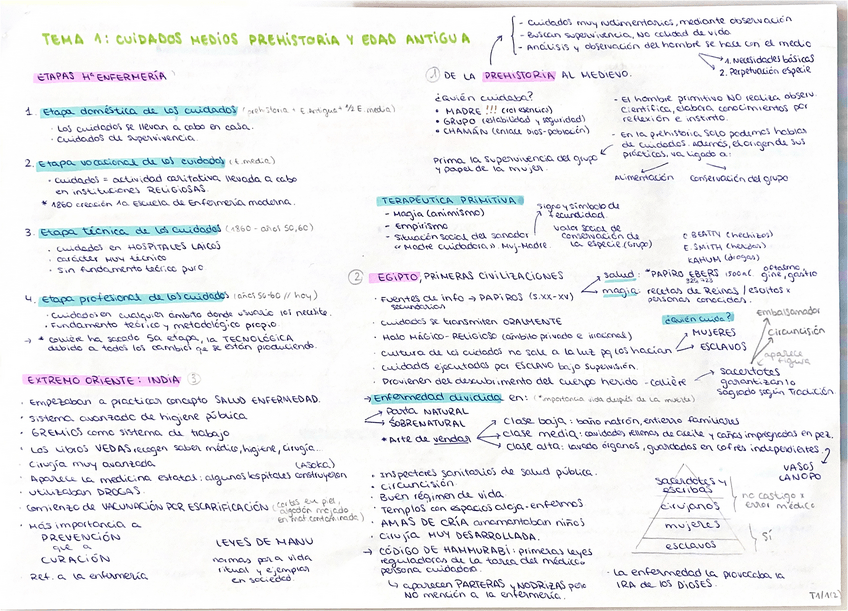 TEMA 1: CUIDADOS MEDIOS PREHISTORIA Y EDAD ANTIGUA
ETAPAS Hª ENFERMERÍA
1. Etapa doméstica de los cuidados (prehistoria + E.Antigua + ½ E.media)
· Los cuidados se llevan a cabo en casa.
· Cuidados de supervivencia.
2. Etapa vocacional de los cuidados (E.media)
· cuidados = actividad caritativa llevada a cabo
en instituciones RELIGIOSAS.
* 1860 creación 1a Escuela de Enfermería moderna.
3. Etapa técnica de los cuidados (1860 - años 50,60)
· cuidados en HOSPITALES LAICOS
· carácter muy técnico
· sin fundamento teórico puro
4. Etapa profesional de los cuidados (años 50-60 // hoy)
· Cuidados en cualquier ámbito donde usuario los necesite.
· Fundamento teórico y metodológico propio.
→ * Colière ha sacado 5a etapa, la TECNOLÓGICA
debido a todos los cambios que se están produciendo.
EXTREMO ORIENTE: INDIA ③
· Empezaban a practicar concepto SALUD ENFERMEDAD.
· Sistema avanzado de higiene pública
· GREMIOS como sistema de trabajo
· Los libros VEDAS recogen saber médico, higiene, cirugía...
· Cirugía muy avanzada (ASOKA)
· Aparece la medicina estatal: algunos hospitales construyeron
· Utilizaban DROGAS.
· Comienzo de VACUNACIÓN POR ESCARIFICACIÓN (cortes en piel,
algodón mojado
en mat contaminada)
· Más importancia a
PREVENCIÓN
que a
CURACIÓN
Ref. a la enfermería
LEYES DE MANU
normas para vida
ritual y ejemplos
en sociedad.
- Cuidados muy rudimentarios, mediante observación
- Buscan supervivencia, no calidad de vida
- Análisis y observación del hombre se hace con el medio
1. Necesidades básicas
2. Perpetuación especie
① DE LA PREHISTORIA AL MEDIEVO.
¿Quién cuidaba?
• MADRE !!! (rol esencial)
• GRUPO (estabilidad y seguridad)
• CHAMÁN (enlace Dios-población)
Prima la supervivencia del grupo
y papel de la mujer.
- El hombre primitivo NO realiza observ.
científica, elabora conocimientos por
reflexión e instinto.
- En la prehistoria solo podemos hablar
de cuidados. Además, el origen de sus
prácticas, va ligado a:
Alimentación Conservación del grupo
TERAPÉUTICA PRIMITIVA
- Magia (animismo)
- Empirismo
- Situación social del sanador
"Madre cuidadora". Muj-Madre.
signo y símbolo de
fecundidad.
valor social de
conservación de
la especie (Grupo)
C BEATTY (hechizos)
E. SMITH (heridas)
KAHUM (drogas)
② EGIPTO, PRIMERAS CIVILIZACIONES
salud: *PAPIRO EBERS 1500 a.C. oftalmo,
gine, gastro
magia: recetas de Reinas / escritos x
personas conocidas.
· Fuentes de info → PAPIROS (s.XX-XV)
secundarias
· cuidados se transmiten ORALMENTE
· Halo MÁGICO-RELIGIOSO (ámbito privado e irracional)
· Cultura de los cuidados no sale a la luz pq los hacían
¿Quién cuida?
MUJERES
ESCLAVOS
· cuidados ejecutados por ESCLAVO bajo supervisión.
· Provienen del descubrimiento del cuerpo herido - Colière
Embalsamador
Circuncisión
aparece
figura
sacerdotes
garantizan lo
sagrado según tradición.
→ Enfermedad dividida en: (*importancia vida después de la muerte)
Parte NATURAL
SOBRENATURAL
* Arte de vendar
Clase baja: baño natrón, entierro familiares
Clase media: cavidades rellenas de aceite y cañas impregnadas en pez.
Clase alta: lavado órganos, guardados en cofres independientes
VASOS
CANOPO
· Inspectores sanitarios de salud pública.
· Circuncisión.
· Buen régimen de vida
· Templos con espacios aloja-enfermos
· AMAS DE CRÍA amamantaban niños
· Cirugía MUY DESARROLLADA.
→ CÓDIGO DE HAMMURABI: primeras leyes
reguladoras de la tarea del médico -
persona cuidados.
↳ aparecen PARTERAS y NODRIZAS pero
NO mención a la enfermería.
sacerdotes y
escribas
cirujanos
mujeres
esclavos
no castigo x
error médico
sí
· La enfermedad la provocaba la
IRA de los DIOSES.
T1/1(2)